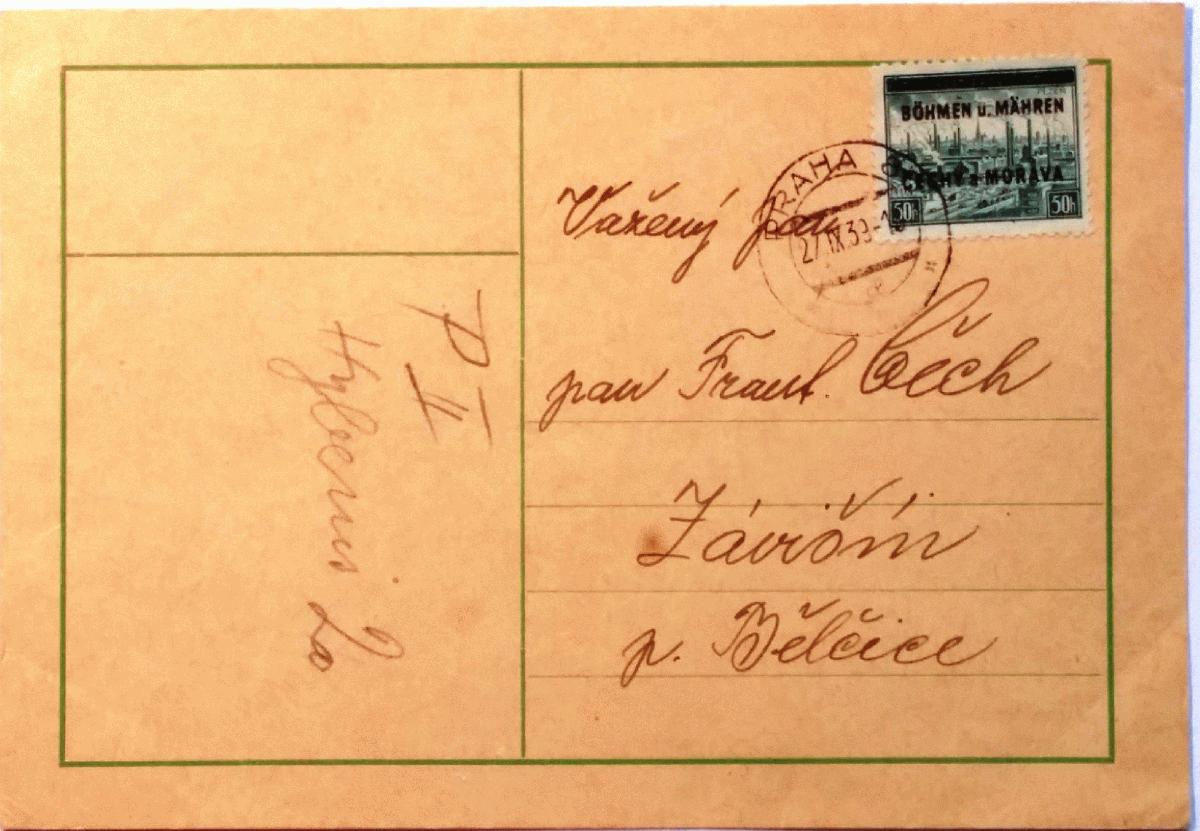 BÖHMEN u. MÄHREN
ČECHY a MORAVA
50h 50h
PRAHA
27.IX.39
Vážený pan
pan Frant. Čech
Závišín
p. Bělčice
P II
Hybernś 20